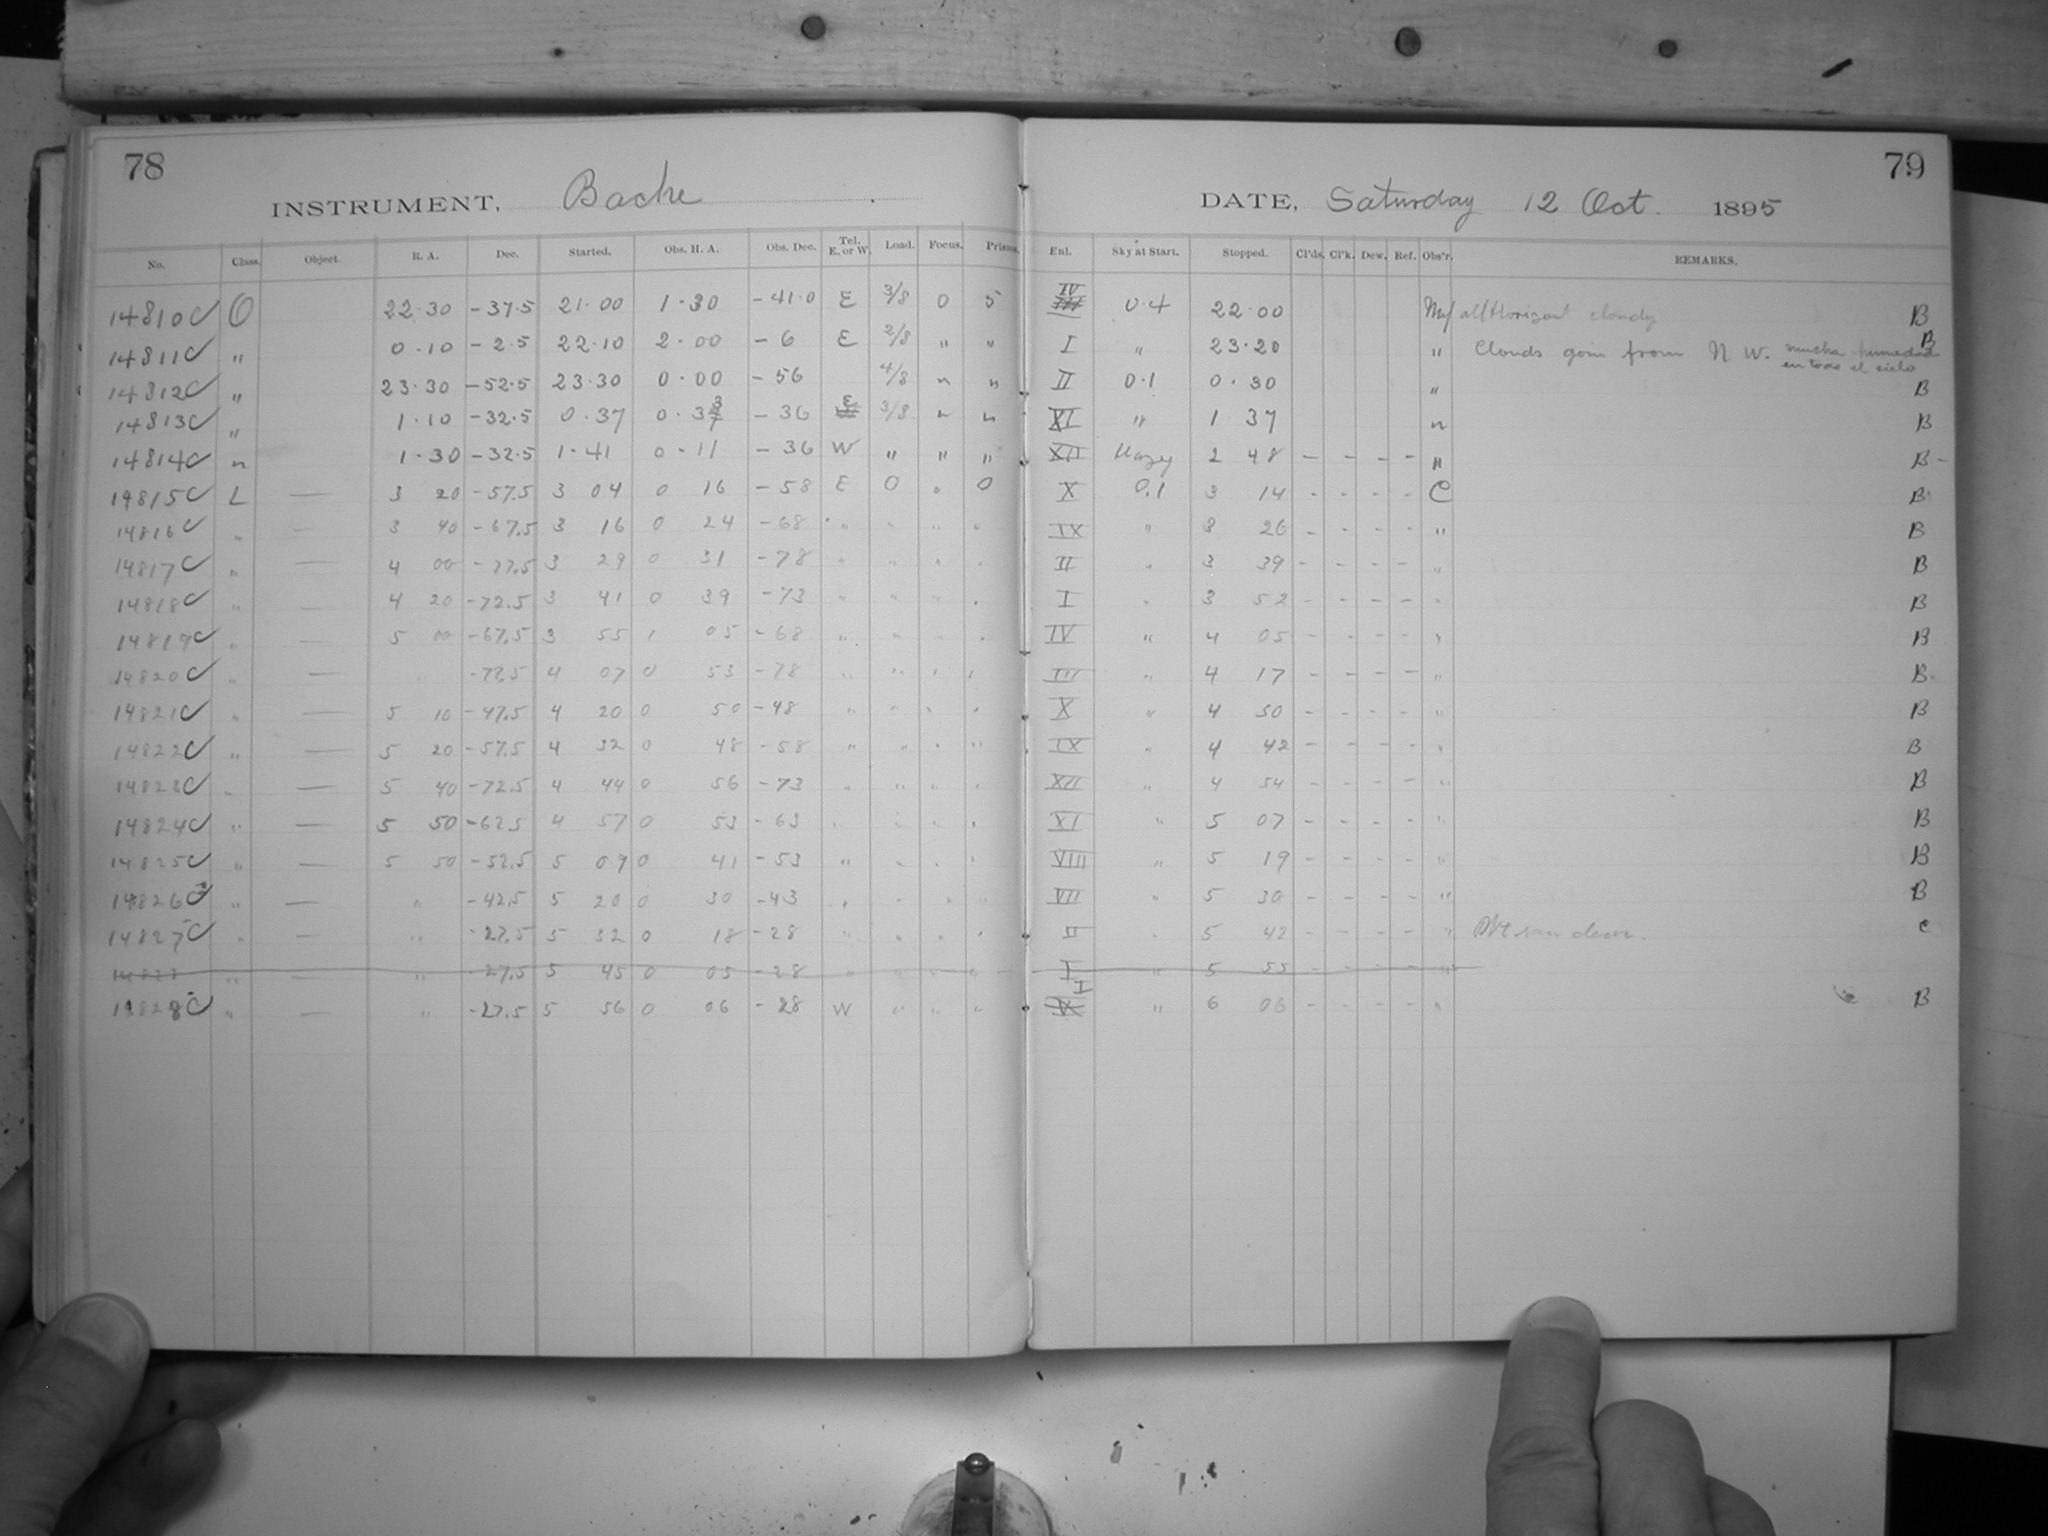 78
INSTRUMENT, Bache
No. Class. Object. R. A. Dec. Started. Obs. H. A. Obs. Dec. Tel. E. or W. Load. Focus. Prisms.
14810C O 22·30 -37·5 21·00 1·30 -41·0 E 3/8 0 5
14811C " 0·10 -2·5 22·10 2·00 -6 E 2/8 " "
14812C " 23·30 -52·5 23·30 0·00 -56 4/8 " "
14813C " 1·10 -32·5 0·37 0·33 -36 E 3/8 " "
14814C " 1·30 -32·5 1·41 0·11 -36 W " " "
14815C L — 3 20 -57.5 3 04 0 16 -58 E 0 " 0
14816C " — 3 40 -67.5 3 16 0 24 -68 " " " "
14817C " — 4 00 -77.5 3 29 0 31 -78 " " " "
14818C " — 4 20 -72.5 3 41 0 39 -73 " " " "
14819C " — 5 00 -67.5 3 55 1 05 -68 " " " "
14820C " — " 4 07 0 53 -78 " " " "
14821C " — 5 10 -47.5 4 20 0 50 -48 " " " "
14822C " — 5 20 -57.5 4 32 0 48 -58 " " " "
14823C " — 5 40 -72.5 4 44 0 56 -73 " " " "
14824C " — 5 50 -62.5 4 57 0 53 -63 " " " "
14825C " — 5 50 -52.5 5 09 0 41 -53 " " " "
14826C " — " -42.5 5 20 0 30 -43 " " " "
14827C " — " -27.5 5 32 0 18 -28 " " " "
14828 " — " -27.5 5 45 0 05 -28 " " " "
14828C " — " -27.5 5 56 0 06 -28 W " " "
79
DATE, Saturday 12 Oct. 1895
Enl. Sky at Start. Stopped. Cl'ds. Cl'k. Dew. Ref. Obs'r. REMARKS.
IV 0.4 22·00 all Horizont cloudy B
I " 23·20 " Clouds goin from N W. mucha humedad en todo el cielo B
II 0.1 0·30 " B
XI " 1 37 " B
XII Hazy 2 48 - - - - " B
X 0.1 3 14 - - - - C B
IX " 3 26 - - - - " B
II " 3 39 - - - - " B
I " 3 52 - - - - " B
IV " 4 05 - - - - " B
III " 4 17 - - - - " B
X " 4 30 - - - - " B
IX " 4 42 - - - - " B
XII " 4 54 - - - - " B
XI " 5 07 - - - - " B
VIII " 5 19 - - - - " B
VII " 5 30 - - - - " B
II " 5 42 - - - - " ran down. C
I " 5 55 - - - - "
I " 6 06 - - - - " B